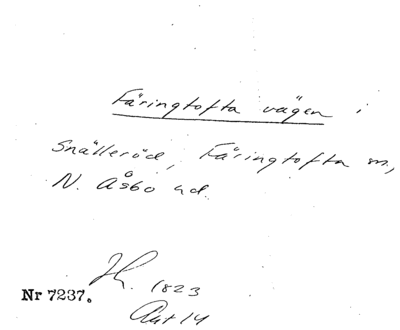 Färingtofta vägen i
Snälleröd, Färingtofta sn,
N. Åsbo hd.
H. 1823
Nr 7237.
Akt 14